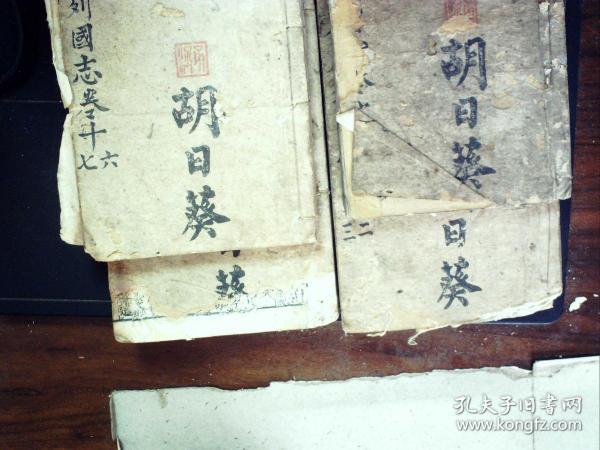 列國志卷十六
七
胡日葵
日葵
胡日葵
日葵
二
三
孔夫子旧书网
www.kongfz.com